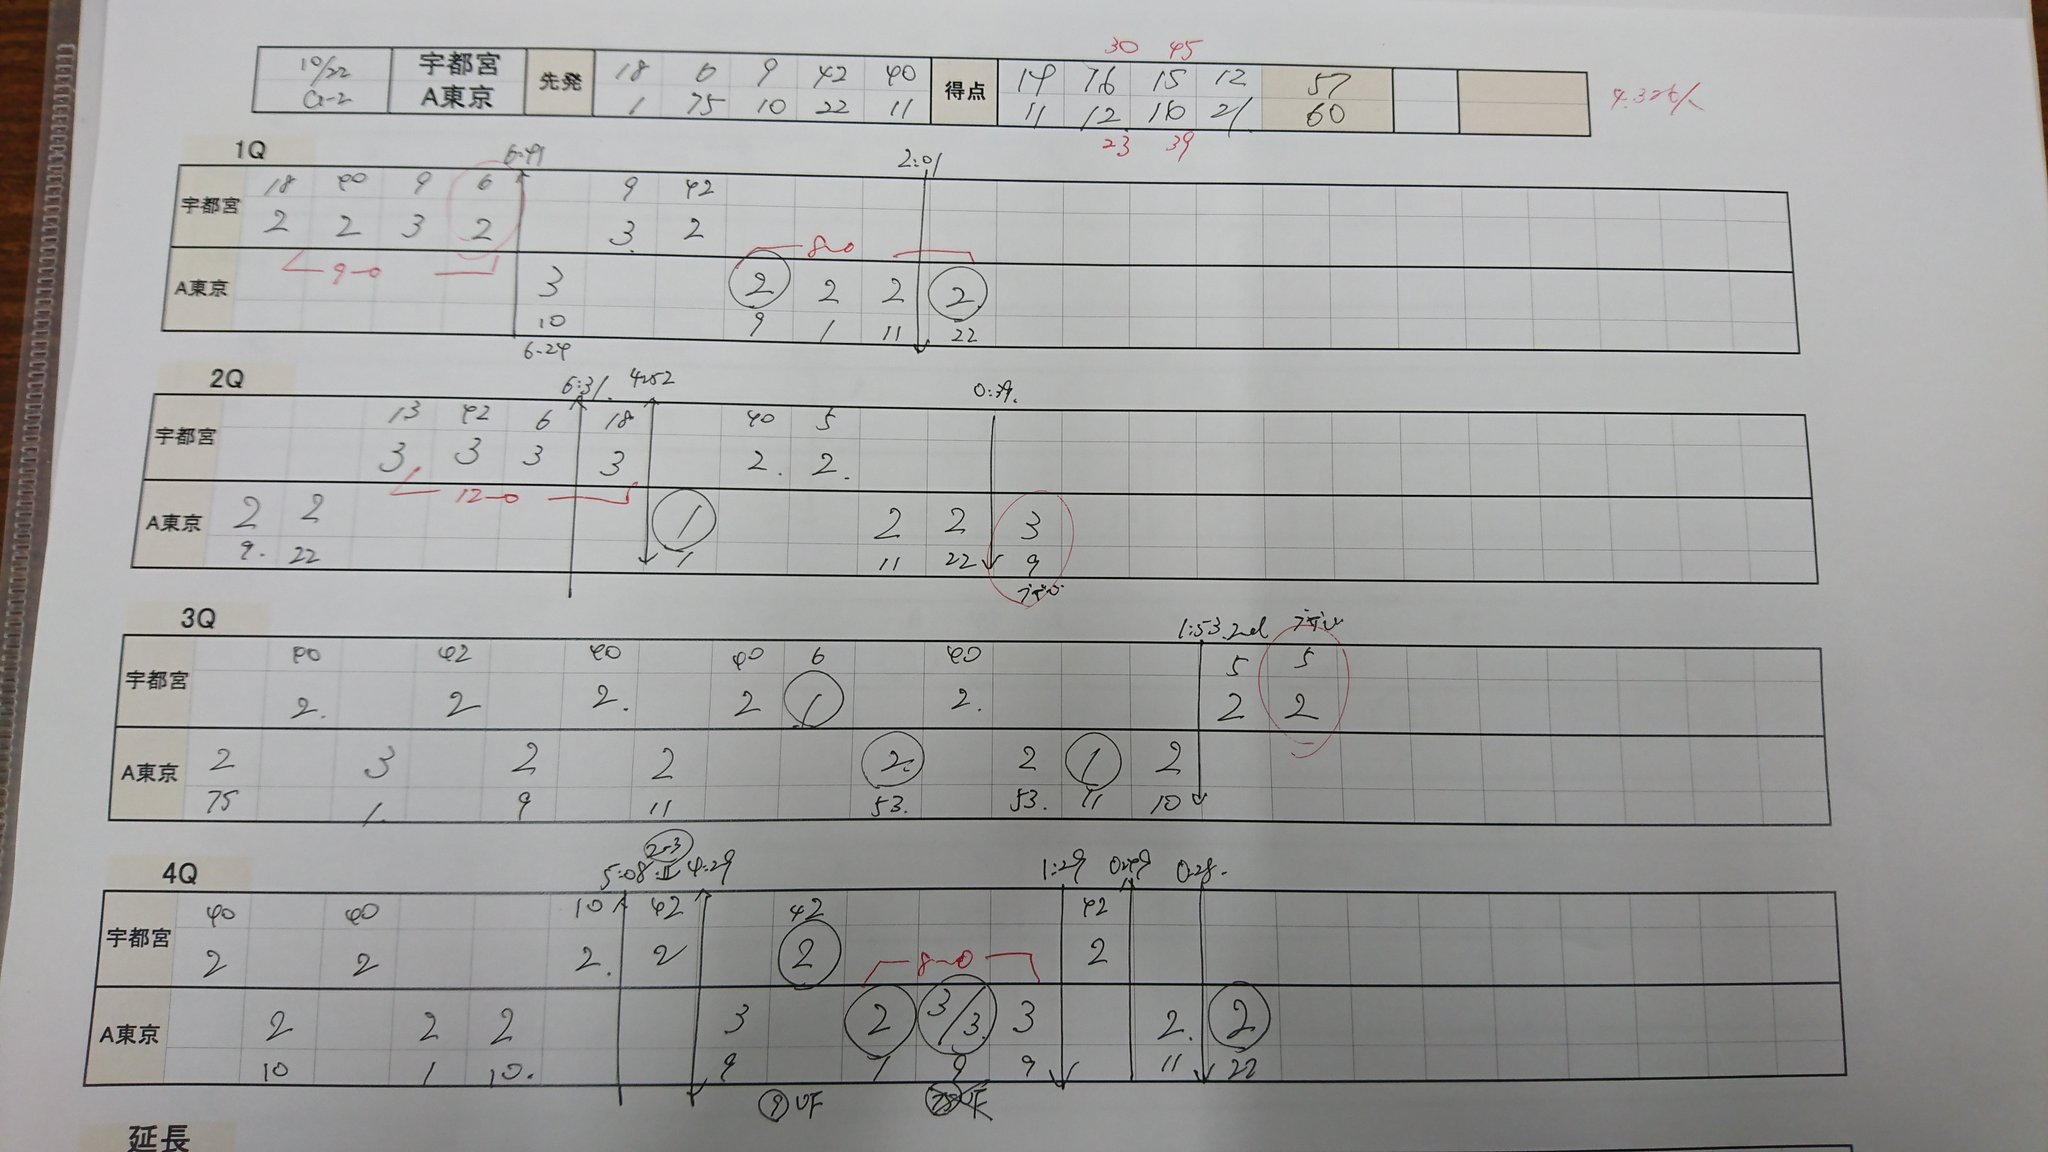 30 45
10/22 宇都宮 先発 18 6 9 42 40 得点 14 16 15 12 57
G-2 A東京 1 75 10 22 11 11 12 16 21 60
23 39
1Q 2:01
宇都宮 18 40 9 6 9 42
2 2 3 2 3 2
9-0 8-0
A東京 3 2 2 2 2
10 9 1 11 22
6:24
2Q 6:31 4:52 0:39
宇都宮 13 42 6 18 40 5
3 3 3 3 2 2
12-0
A東京 2 2 1 2 2 3
9 22 1 11 22 9
3Q 1:53 2nd
宇都宮 40 42 40 40 6 40 5 5
2 2 2 2 1 2 2 2
A東京 2 3 2 2 2 2 1 2
75 1 9 11 53 53 11 10
2-3
4Q 5:08 4:29 1:29 0:49 0:28
宇都宮 40 40 10 42 42 42
2 2 2 2 2 2
8-0
A東京 2 2 2 3 2 3/3 3 2 2
10 1 10 9 1 9 9 11 22
9 UF
延長